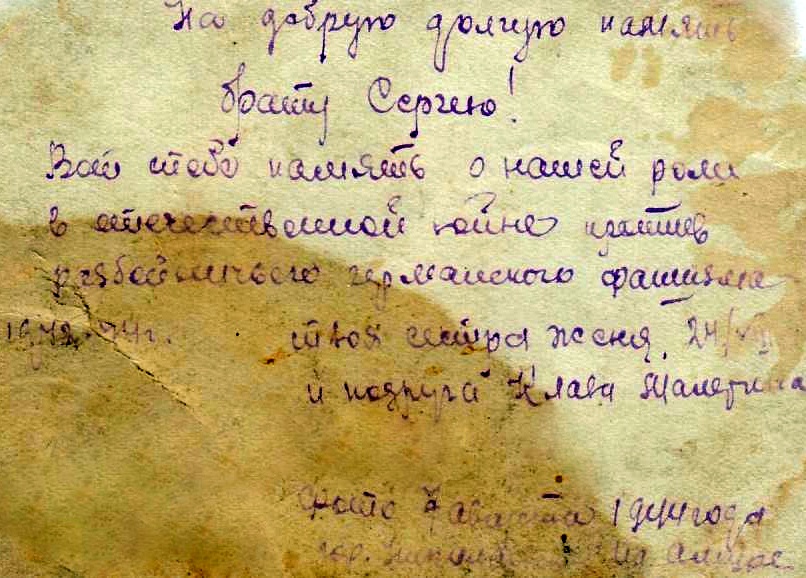 На добрую долгую память
брату Сергею!
Вот тебе память о нашей роли
в отечественной войне против
разбойничьего германского фашизма
1942-44г. твоя сестра Женя, 24/VIII
и подруга Клава
Фото 7 августа 1944 года
гор. на Амуре